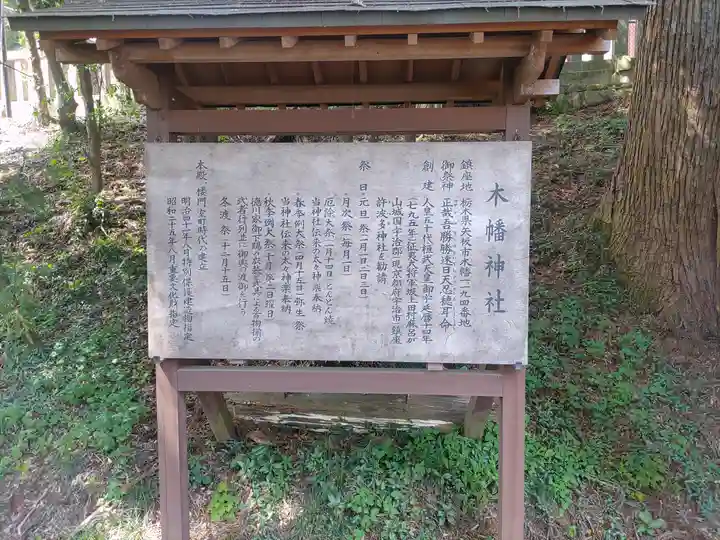 木幡神社
鎮座地 栃木県矢板市木幡一一九四番地
御祭神 正哉吾勝勝速日天忍穂耳命
創建 人皇五十代桓武天皇御宇延暦十四年
(七九五年)征夷大将軍坂上田村麻呂が
山城国宇治郡(現京都府宇治市)鎮座
許波多神社を勧請
祭日 元旦祭(一月一日二日三日)
・月次祭(毎月一日)
厄除大祭(一月十四日)どんどん焼
当神社伝来の太々神楽奉納
・春季例大祭(四月十五日)弥生祭
当神社伝来の太々神楽奉納
・秋季例大祭(十月第二日曜日)
徳川家御下賜の
武者行列並に御神輿渡御を行う
冬渡祭(十二月十五日)
本殿 楼門 室町時代の建立
明治四十一年八月特別保護建造物指定
昭和二十五年八月重要文化財指定